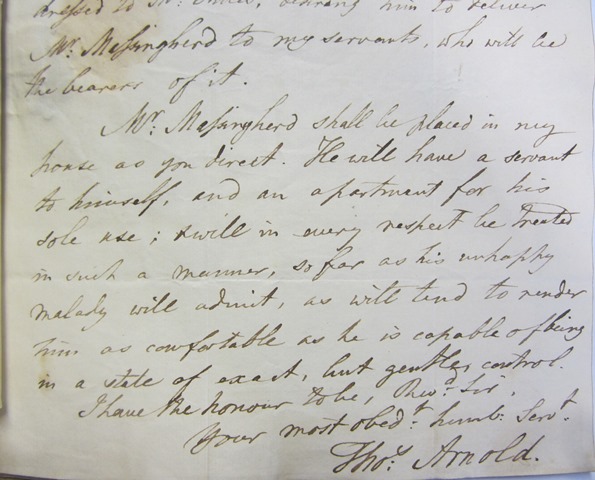 dressed to Mr. Innes, desiring him to deliver
Mr. Massingherd to my servants, who will be
the bearers of it.
Mr. Massingherd shall be placed in my
house as you direct. He will have a servant
to himself, and an apartment for his
sole use; & will in every respect be treated
in such a manner, so far as his unhappy
malady will admit, as will tend to render
him as comfortable as he is capable of being
in a state of exact, but gentle, control.
I have the honour to be, Revd. Sir,
Your most obedt. humb: Servt.
Thos. Arnold.